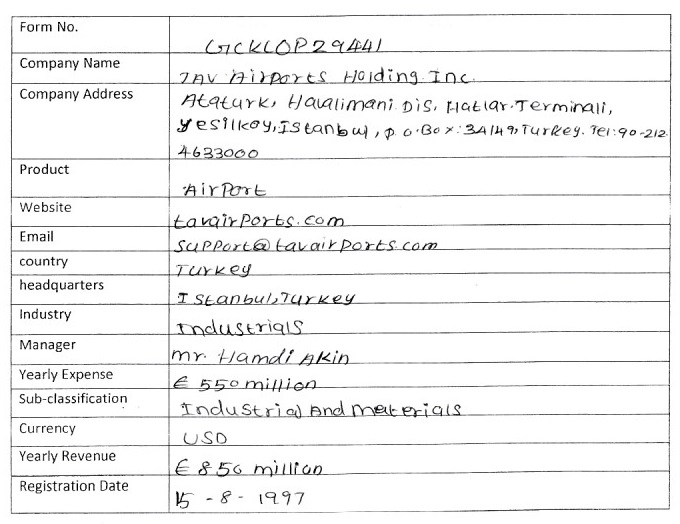 Form No.
GCKLOP29441
Company Name
TAV Airports Holding Inc.
Company Address
Ataturk, Havalimani Dis, Hatlar Terminali,
Yesilkoy, Istanbul, P.O.Box: 34149, Turkey. Tel: 90-212
4633000
Product
Airport
Website
tavairports.com
Email
support@tavairports.com
country
Turkey
headquarters
Istanbul, Turkey
Industry
Industrials
Manager
mr. Hamdi Akin
Yearly Expense
€ 550 million
Sub-classification
Industrial And materials
Currency
USD
Yearly Revenue
€ 850 million
Registration Date
15 - 8 - 1997